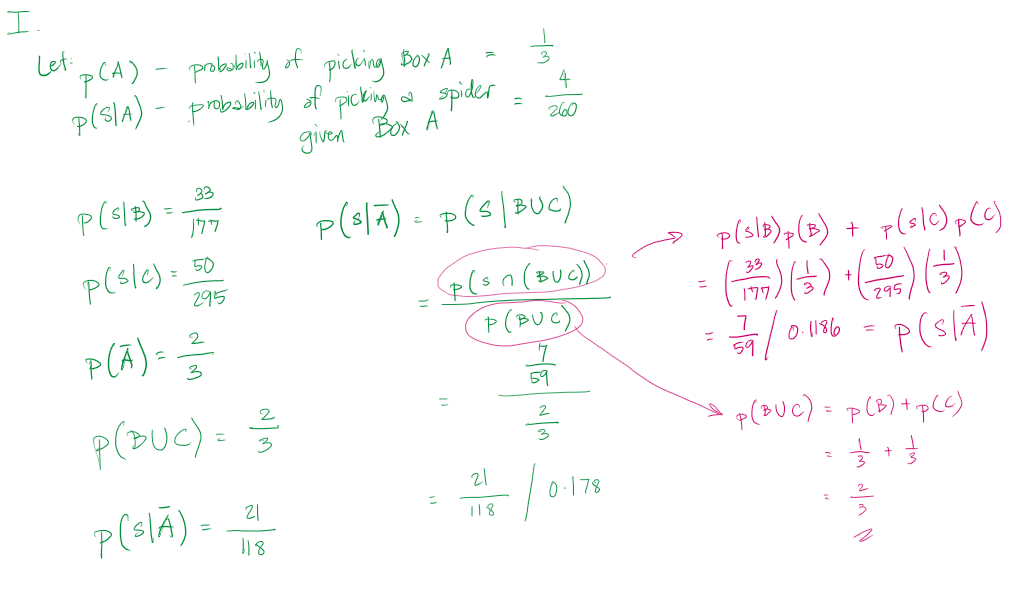 I.
Let: p(A) - probability of picking Box A = 1/3
p(S|A) - probability of picking a spider = 4/260
given Box A
p(S|B) = 33/177
p(S|C) = 50/295
p(Ā) = 2/3
p(BUC) = 2/3
p(S|Ā) = 21/118
p(S|Ā) = p(S|BUC)
= p(S∩(BUC)) / p(BUC)
= 7/59 / 2/3
= 21/118 / 0.178
p(S|B)p(B) + p(S|C)p(C)
= (33/177)(1/3) + (50/295)(1/3)
= 7/59 / 0.1186 = p(S|Ā)
p(BUC) = p(B)+p(C)
= 1/3 + 1/3
= 2/3